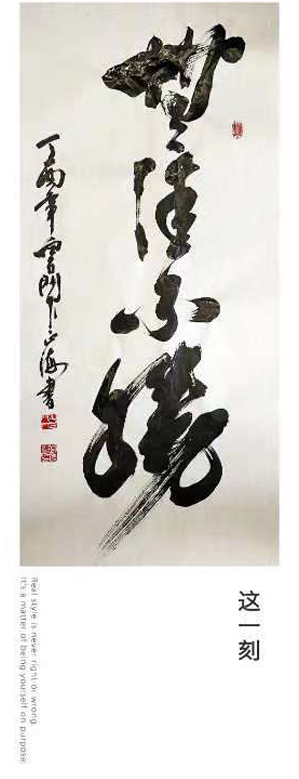 無往不勝
丁酉年雲海書
这一刻
Real style is never right or wrong.
It's a matter of being yourself on purpose.